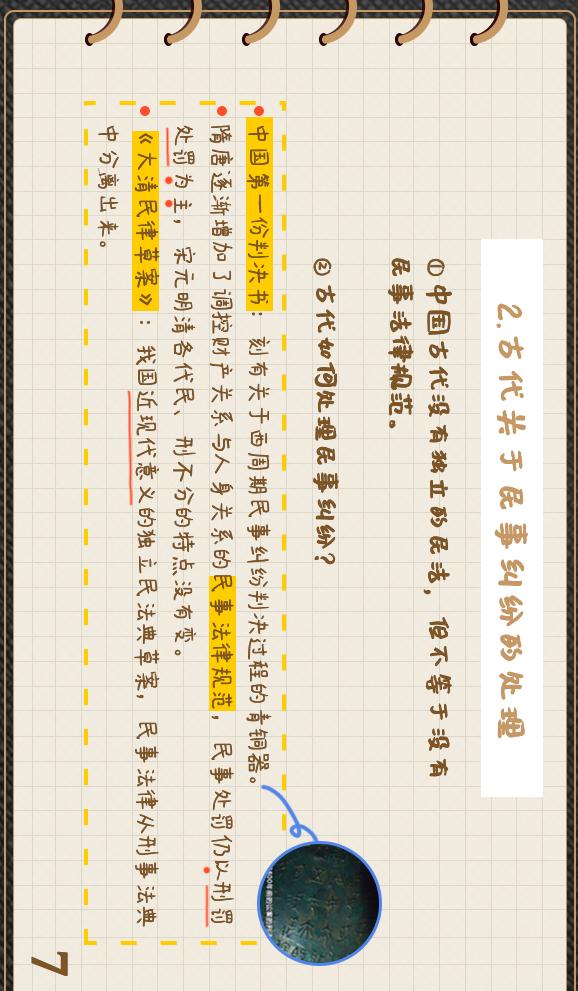 2.古代关于民事纠纷的处理
①中国古代没有独立的民法，但不等于没有
民事法律规范。
②古代如何处理民事纠纷？
中国第一份判决书：刻有关于西周期民事纠纷判决过程的青铜器。
隋唐逐渐增加了调控财产关系与人身关系的民事法律规范，民事处罚仍以刑罚
处罚为主，宋元明清各代民、刑不分的特点没有变。
《大清民律草案》：我国近现代意义的独立民法典草案，民事法律从刑事法典
中分离出来。
7